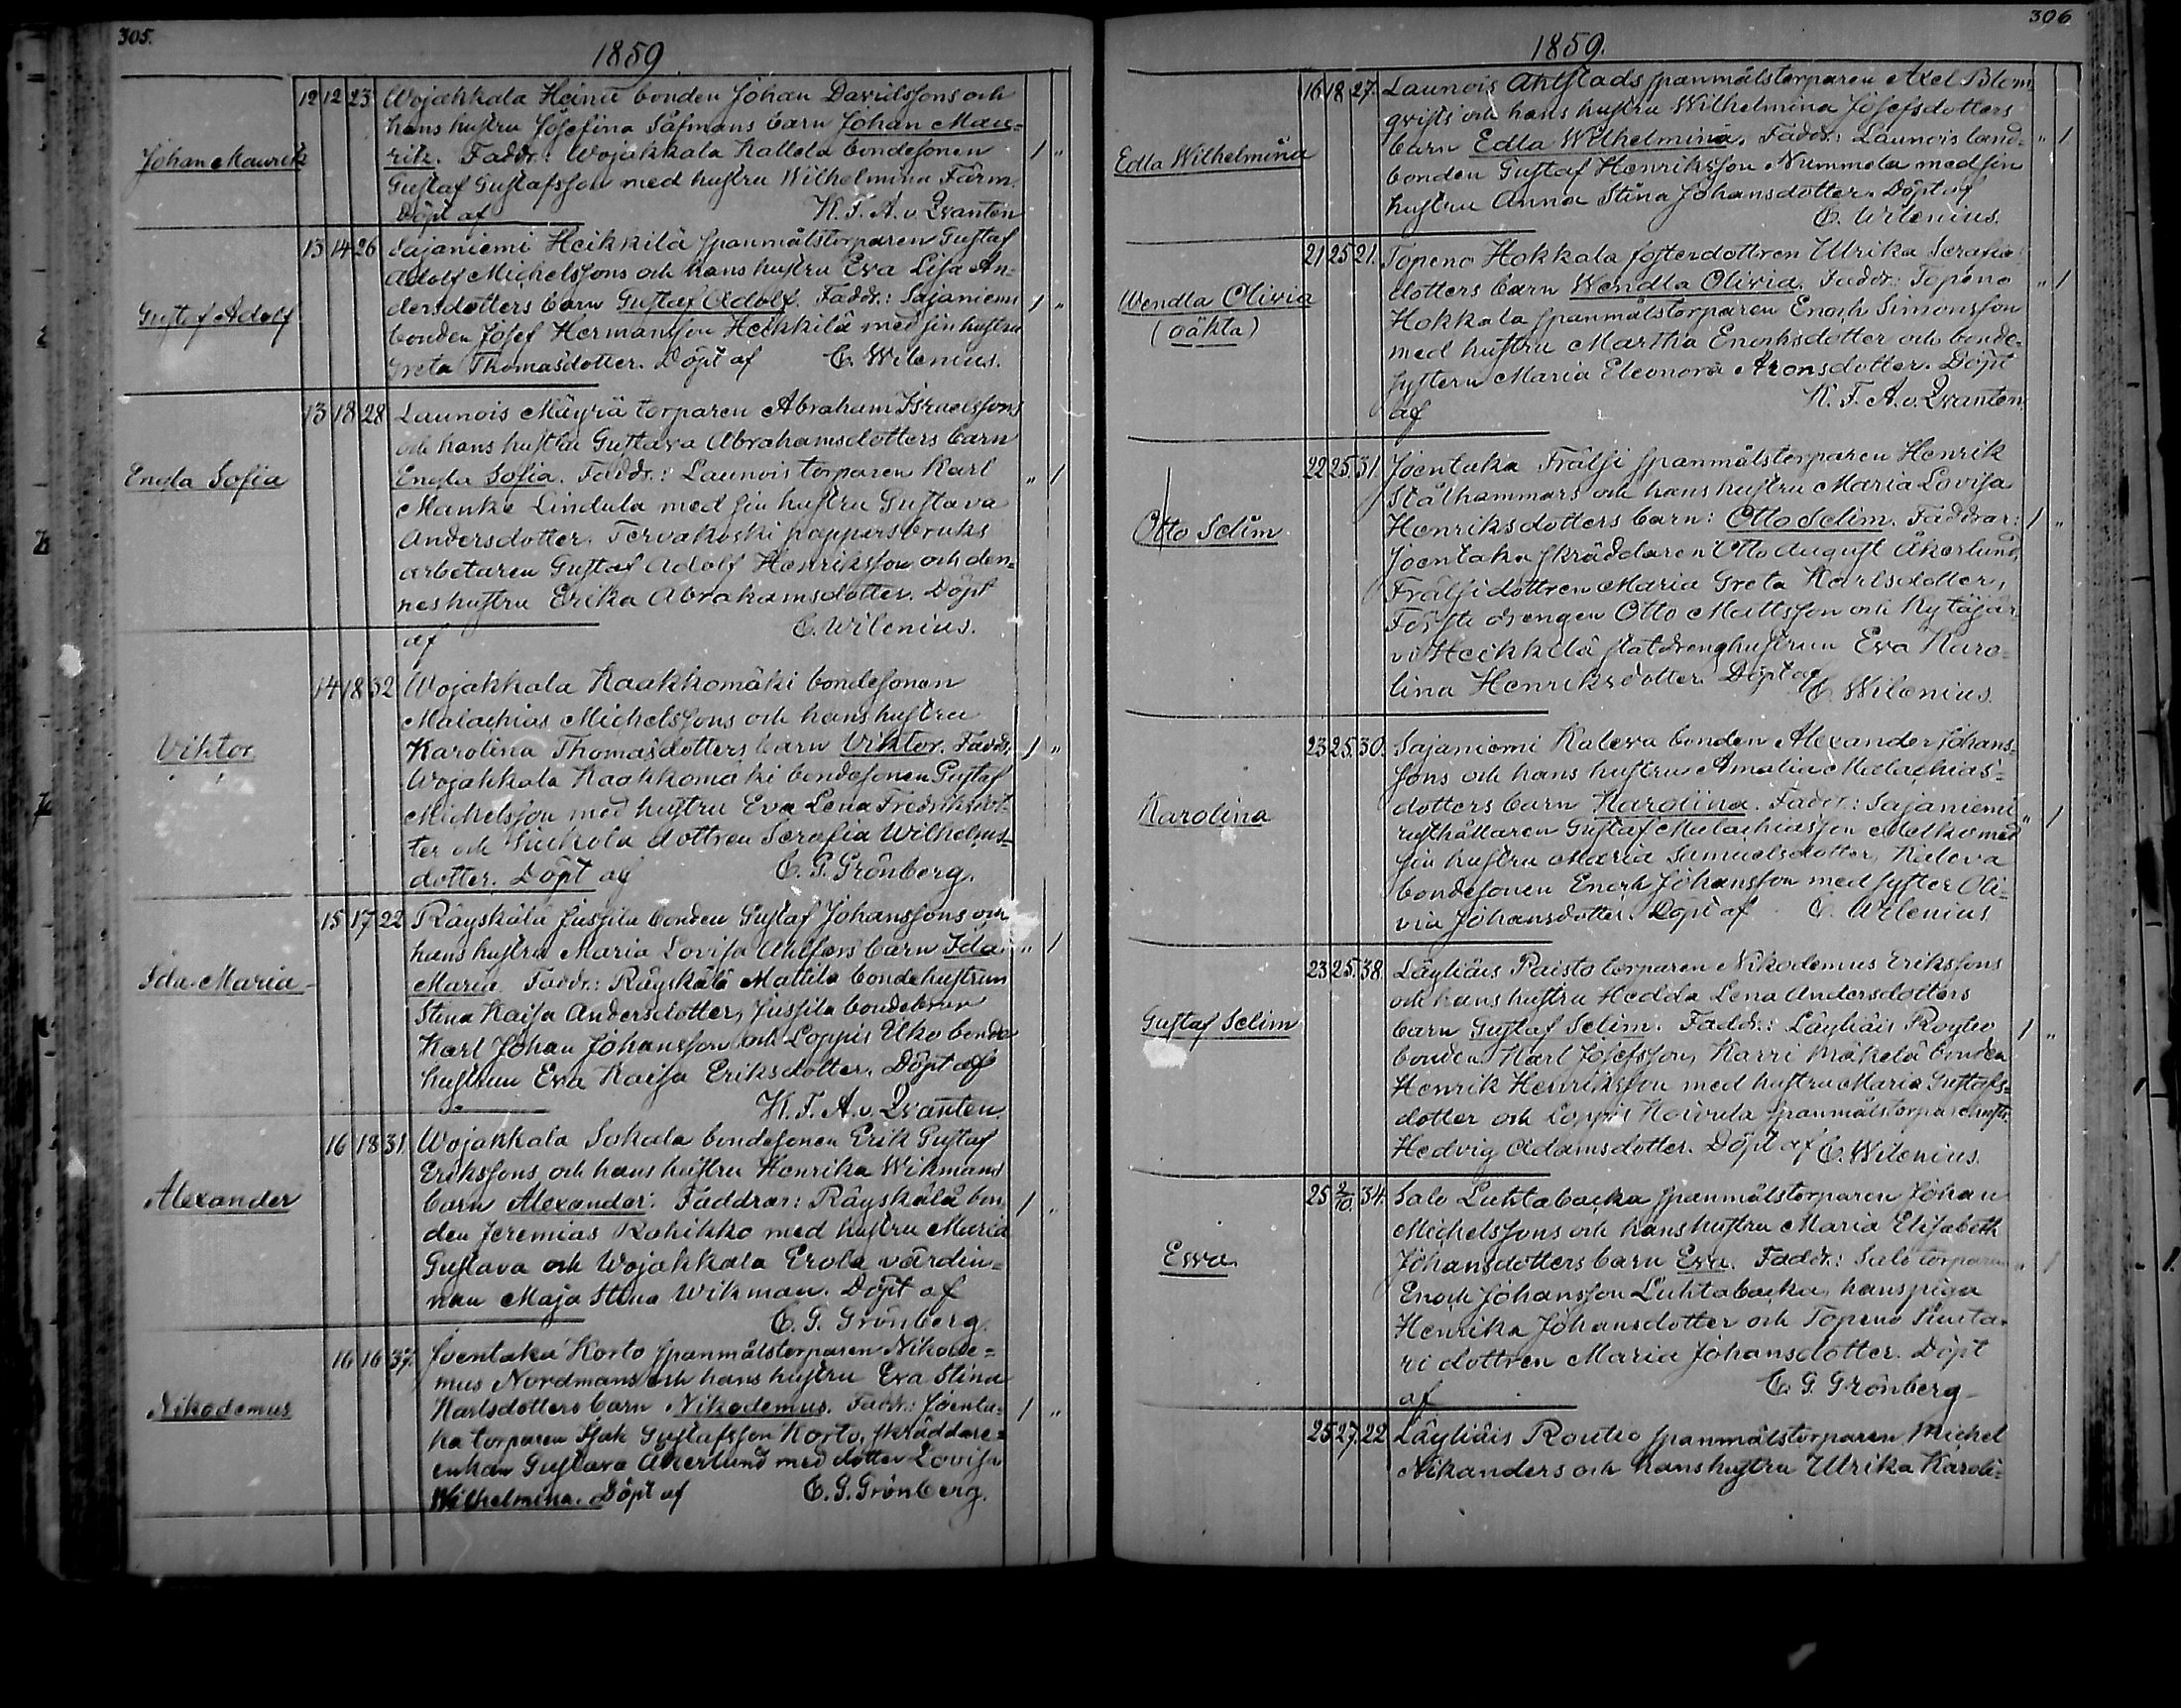 305.
1859.
Johan Maurits
12 12 23 Wojakkala Heinu bonden Johan Davidssons och
hans hustru Josefina Säfmans barn Johan Mau=
rits. Faddr.: Wojakkala Kallela bondesonen
Gustaf Gustafsson med hustru Wilhelmina Färm.
Döpt af K. F. A. v. Qvanten
1 „
Gustaf Adolf
13 14 26 Sajaniemi Heikkilä spanmålstorparen Gustaf
Adolf Michelssons och hans hustru Eva Lisa An=
dersdotters barn Gustaf Adolf. Faddr.: Sajaniemi
bonden Josef Hermansson Heikkilä med sin hustru
Greta Thomasdotter. Döpt af C. Wilenius.
1 „
Engla Sofia
13 18 28 Launois Mäyrä torparen Abraham Israelssons
och hans hustru Gustava Abrahamsdotters barn
Engla Sofia. Faddr.: Launois torparen Karl
Manke Lindula med sin hustru Gustava
Andersdotter. Tervakoski pappersbruks
arbetaren Gustaf Adolf Henriksson och den=
nes hustru Erika Abrahamsdotter. Döpt
af C. Wilenius.
„ 1
Viktor
14 18 32 Wojakkala Kaakkomäki bondesonen
Malachias Michelssons och hans hustru
Karolina Thomasdotters barn Viktor. Faddr.
Wojakkala Kaakkomäki bondesonen Gustaf
Michelsson med hustru Eva Lena Fredriksdot=
ter och dottren Serafia Wilhelms=
dotter. Döpt af C. G. Grönberg.
1 „
Ida Maria
15 17 22 Räyskälä Jussila bonden Gustaf Johanssons och
hans hustru Maria Lovisa Ahlfors barn Ida
Maria. Faddr.: Räyskälä Mattila bondehustrun
Stina Kaisa Andersdotter, Jussila bondebror
Karl Johan Johansson och Loppis Uko bonde
hustrun Eva Kaisa Eriksdotter. Döpt af
K. F. A. v. Qvanten
„ 1
Alexander
16 18 31 Wojakkala Sokala bondesonen Erik Gustaf
Erikssons och hans hustru Henrika Wikmans
barn Alexander. Faddrar: Räyskälä bon=
den Jeremias Rahikko med hustru Maria
Gustava och Wojakkala Erola värdin=
nan Maja Stina Wikman. Döpt af
C. G. Grönberg.
1 „
Nikodemus
16 16 37. Joentaka Korto spanmålstorparen Nikode=
mus Nordmans och hans hustru Eva Stina
Karlsdotters barn Nikodemus. Faddr.: Joenta=
ka torparen Isak Gustafsson Korto, skräddare=
enkan Gustava Åkerlund med dotter Lovisa
Wilhelmina. Döpt af C. G. Grönberg.
1 „
306
1859.
Edla Wilhelmina
16 18 27. Launois Ahlstads spanmålstorparen Axel Blom
qvists och hans hustru Wilhelmina Josefsdotters
barn Edla Wilhelmina. Faddr.: Launois land=
bonden Gustaf Henriksson Nummela med sin
hustru Anna Stina Johansdotter. Döpt af
C. Wilenius.
„ 1
Wendla Olivia
(oäkta)
21 25 21. Topeno Hokkala fosterdottren Ulrika Serafia
dotters barn Wendla Olivia. Faddr.: Topeno
Hokkala spanmålstorparen Enoch Simonsson
med hustru Martha Enochsdotter och bonde=
systern Maria Eleonora Aronsdotter. Döpt
af K. F. A. v. Qvanten
„ 1
Otto Selim
22 25. 31. Joentaka Frälsi spanmålstorparen Henrik
Stålhammars och hans hustru Maria Lovisa
Henriksdotters barn: Otto Selim. Faddrar:
Joentaka skräddaren Otto August Åkerlund,
Frälsi dottren Maria Greta Karlsdotter,
drengen Otto Mattsson och Kytäjär=
vi Heikkilä statdrenghustrun Eva Karo=
lina Henriksdotter. Döpt af C. Wilenius.
1 „
Karolina
23 25. 30. Sajaniemi Kaleva bonden Alexander Johans=
sons och hans hustru Amalia Malachias=
dotters barn Karolina. Faddr.: Sajaniemi
rusthållaren Gustaf Malachiasson Melko med
sin hustru Maria Samuelsdotter, Kaleva
bondesonen Enoch Johansson med syster Oli=
via Johansdotter. Döpt af C. Wilenius
„ 1
Gustaf Selim
23 25. 38. Läyliäis Paisto torparen Nikodemus Erikssons
och hans hustru Hedda Lena Andersdotters
barn Gustaf Selim. Faddr.: Läyliäis
bonden Karl Josefsson, Karri Mäkelä bonden
Henrik Henriksson med hustru Maria Gustafs=
dotter och Loppis Koivula spanmålstorparehustr.
Hedvig Adamsdotter. Döpt af C. Wilenius.
1 „
Eva.
25 2/10. 34. Salo Luhtabacka spanmålstorparen Johan
Michelssons och hans hustru Maria Elisabeth
Johansdotters barn Eva. Faddr.: Salo torparen
Enoch Johansson Luhtabacka, hans piga
Henrika Johansdotter och Topeno
ri dottren Maria Johansdotter. Döpt
af C. G. Grönberg
„ 1
25 27. 22 Läyliäis Routio spanmålstorparen Michel
Nikanders och hans hustru Ulrika Karoli=